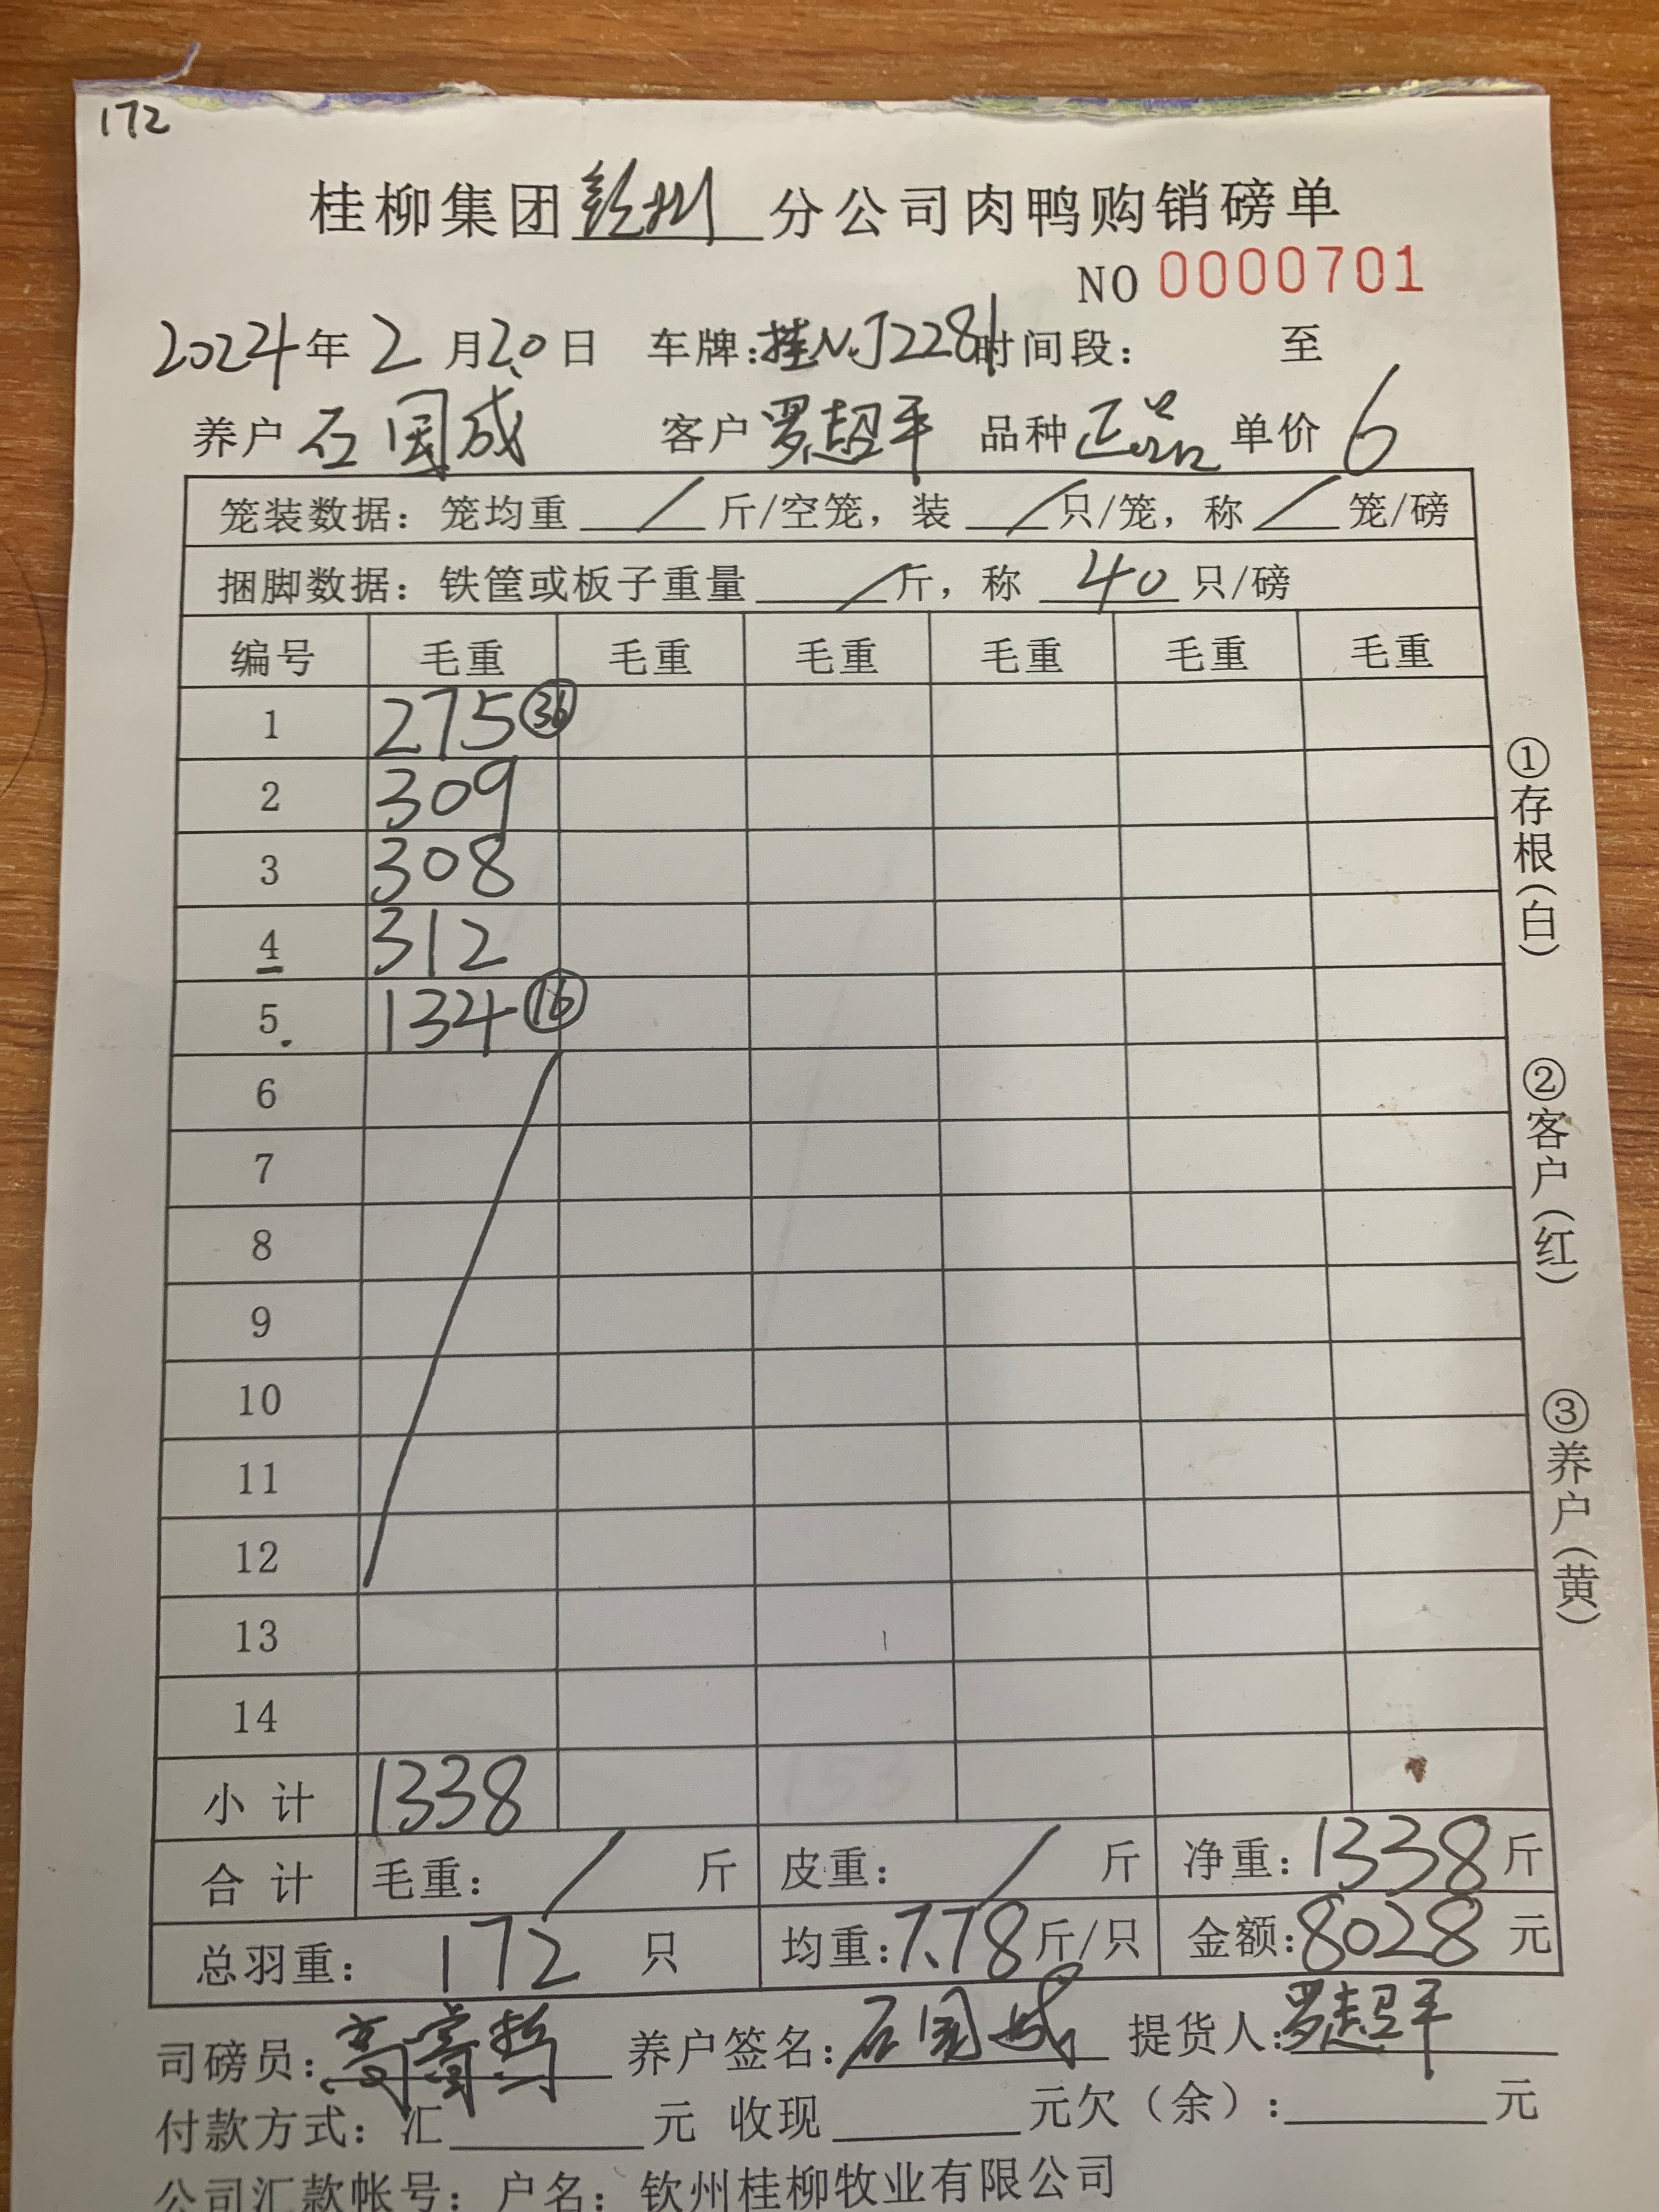 172
桂柳集团钦州分公司肉鸭购销磅单
NO 0000701
2024年 2月20日 车牌:桂NJ2281时间段: 至
养户 石国成 客户 罗超平 品种 正品 单价 6
笼装数据: 笼均重 / 斤/空笼, 装 / 只/笼, 称 / 笼/磅
捆脚数据: 铁筐或板子重量 / 斤, 称 40 只/磅
编号 毛重 毛重 毛重 毛重 毛重 毛重
1 275 36
2 309
3 308
4 312
5 134 16
6
7
8
9
10
11
12
13
14
小计 1338
合计 毛重: / 斤 皮重: / 斤 净重: 1338 斤
总羽重: 172 只 均重: 7.78 斤/只 金额: 8028 元
司磅员: 养户签名: 石国成 提货人: 罗超平
付款方式: 汇 元 收现 元欠(余): 元
公司汇款帐号: 户名: 钦州桂柳牧业有限公司
①存根(白)
②客户(红)
③养户(黄)